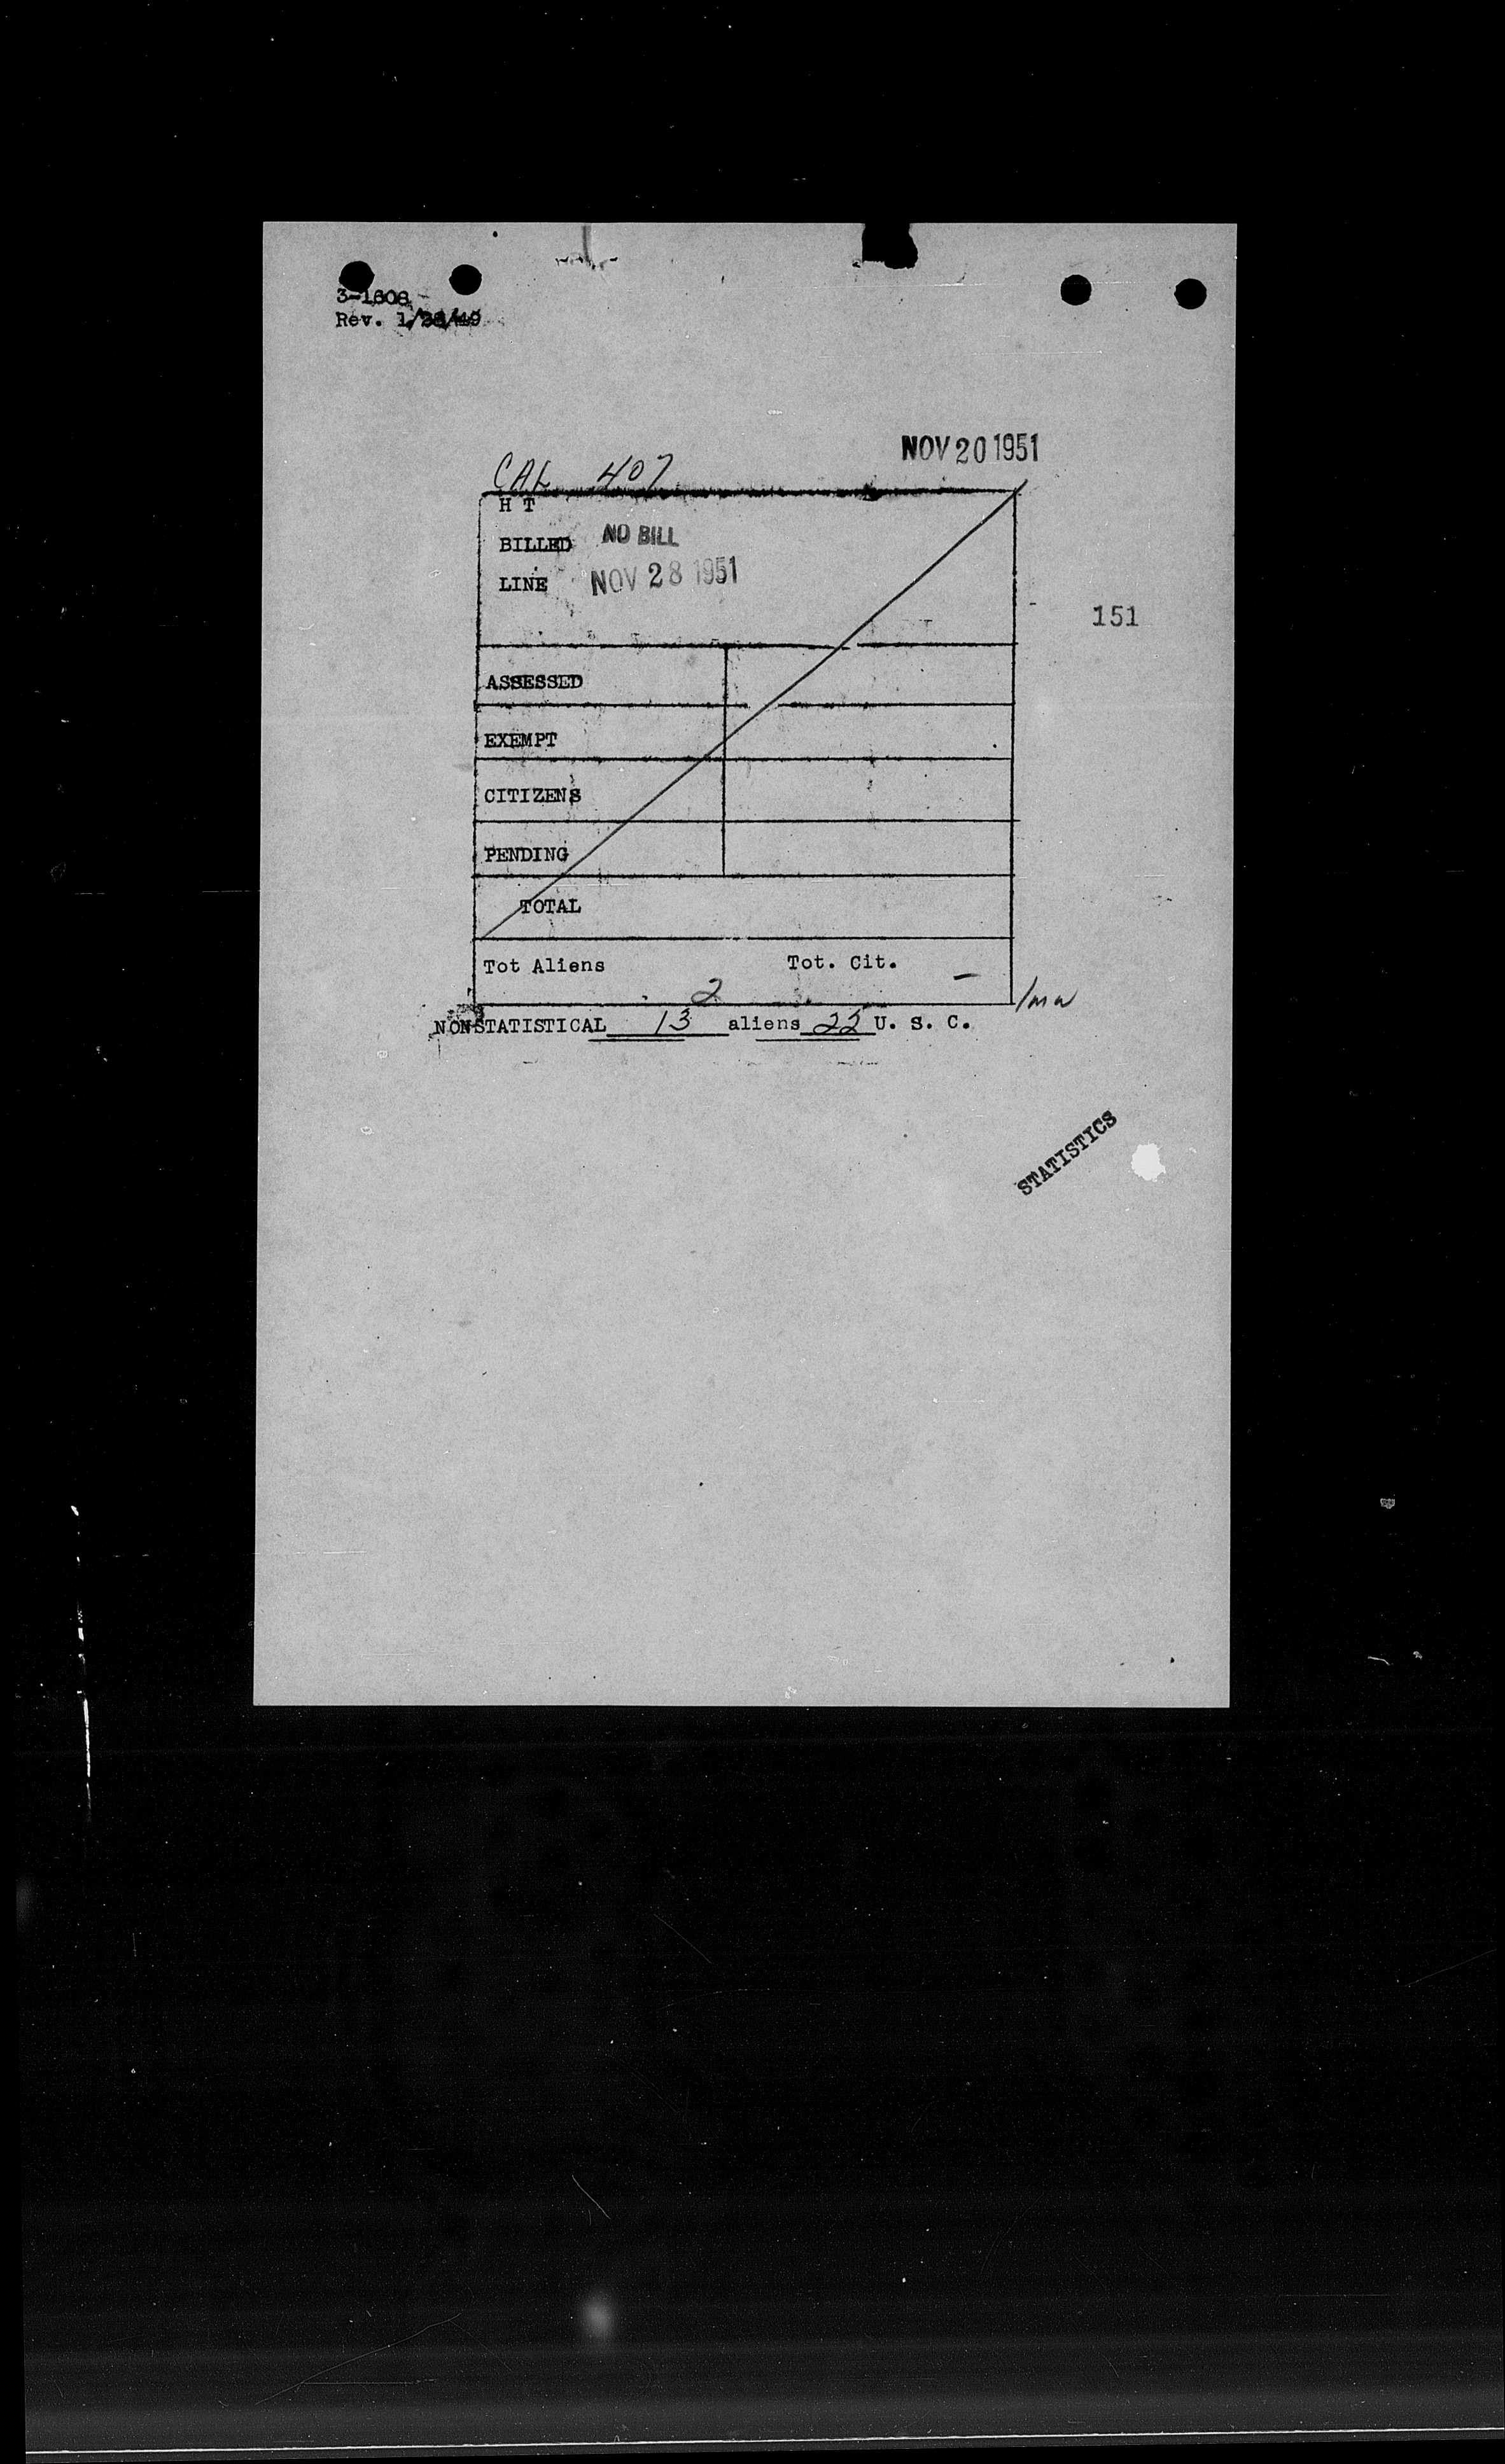 3-1608
Rev. 1/28/49
NOV 20 1951
CAL 407
H T
BILLED NO BILL
LINE NOV 28 1951
151
ASSESSED
EXEMPT
CITIZENS
PENDING
TOTAL
Tot Aliens Tot. Cit.
2 –
NONSTATISTICAL 13 aliens 22 U. S. C.
STATISTICS